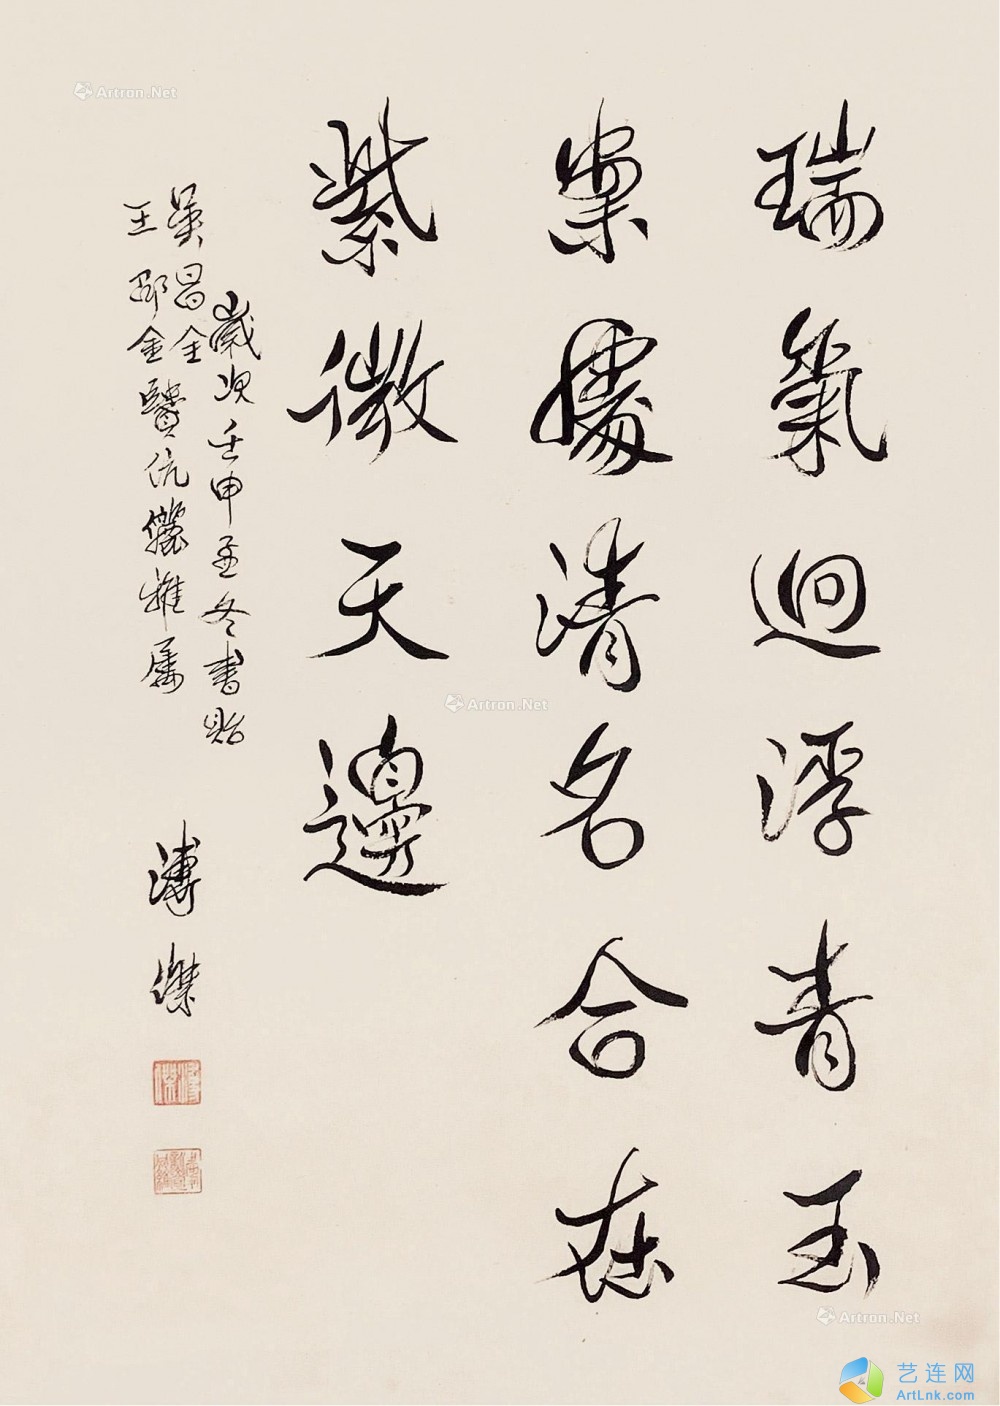 瑞氣迥浮青玉
案據清名合在
紫微天邊
歲次壬申孟冬書貽
吳昌全
王郡金賢伉儷雅屬
溥傑
Artron.Net
Artron.Net
Artron.Net
艺连网
ArtLnk.com